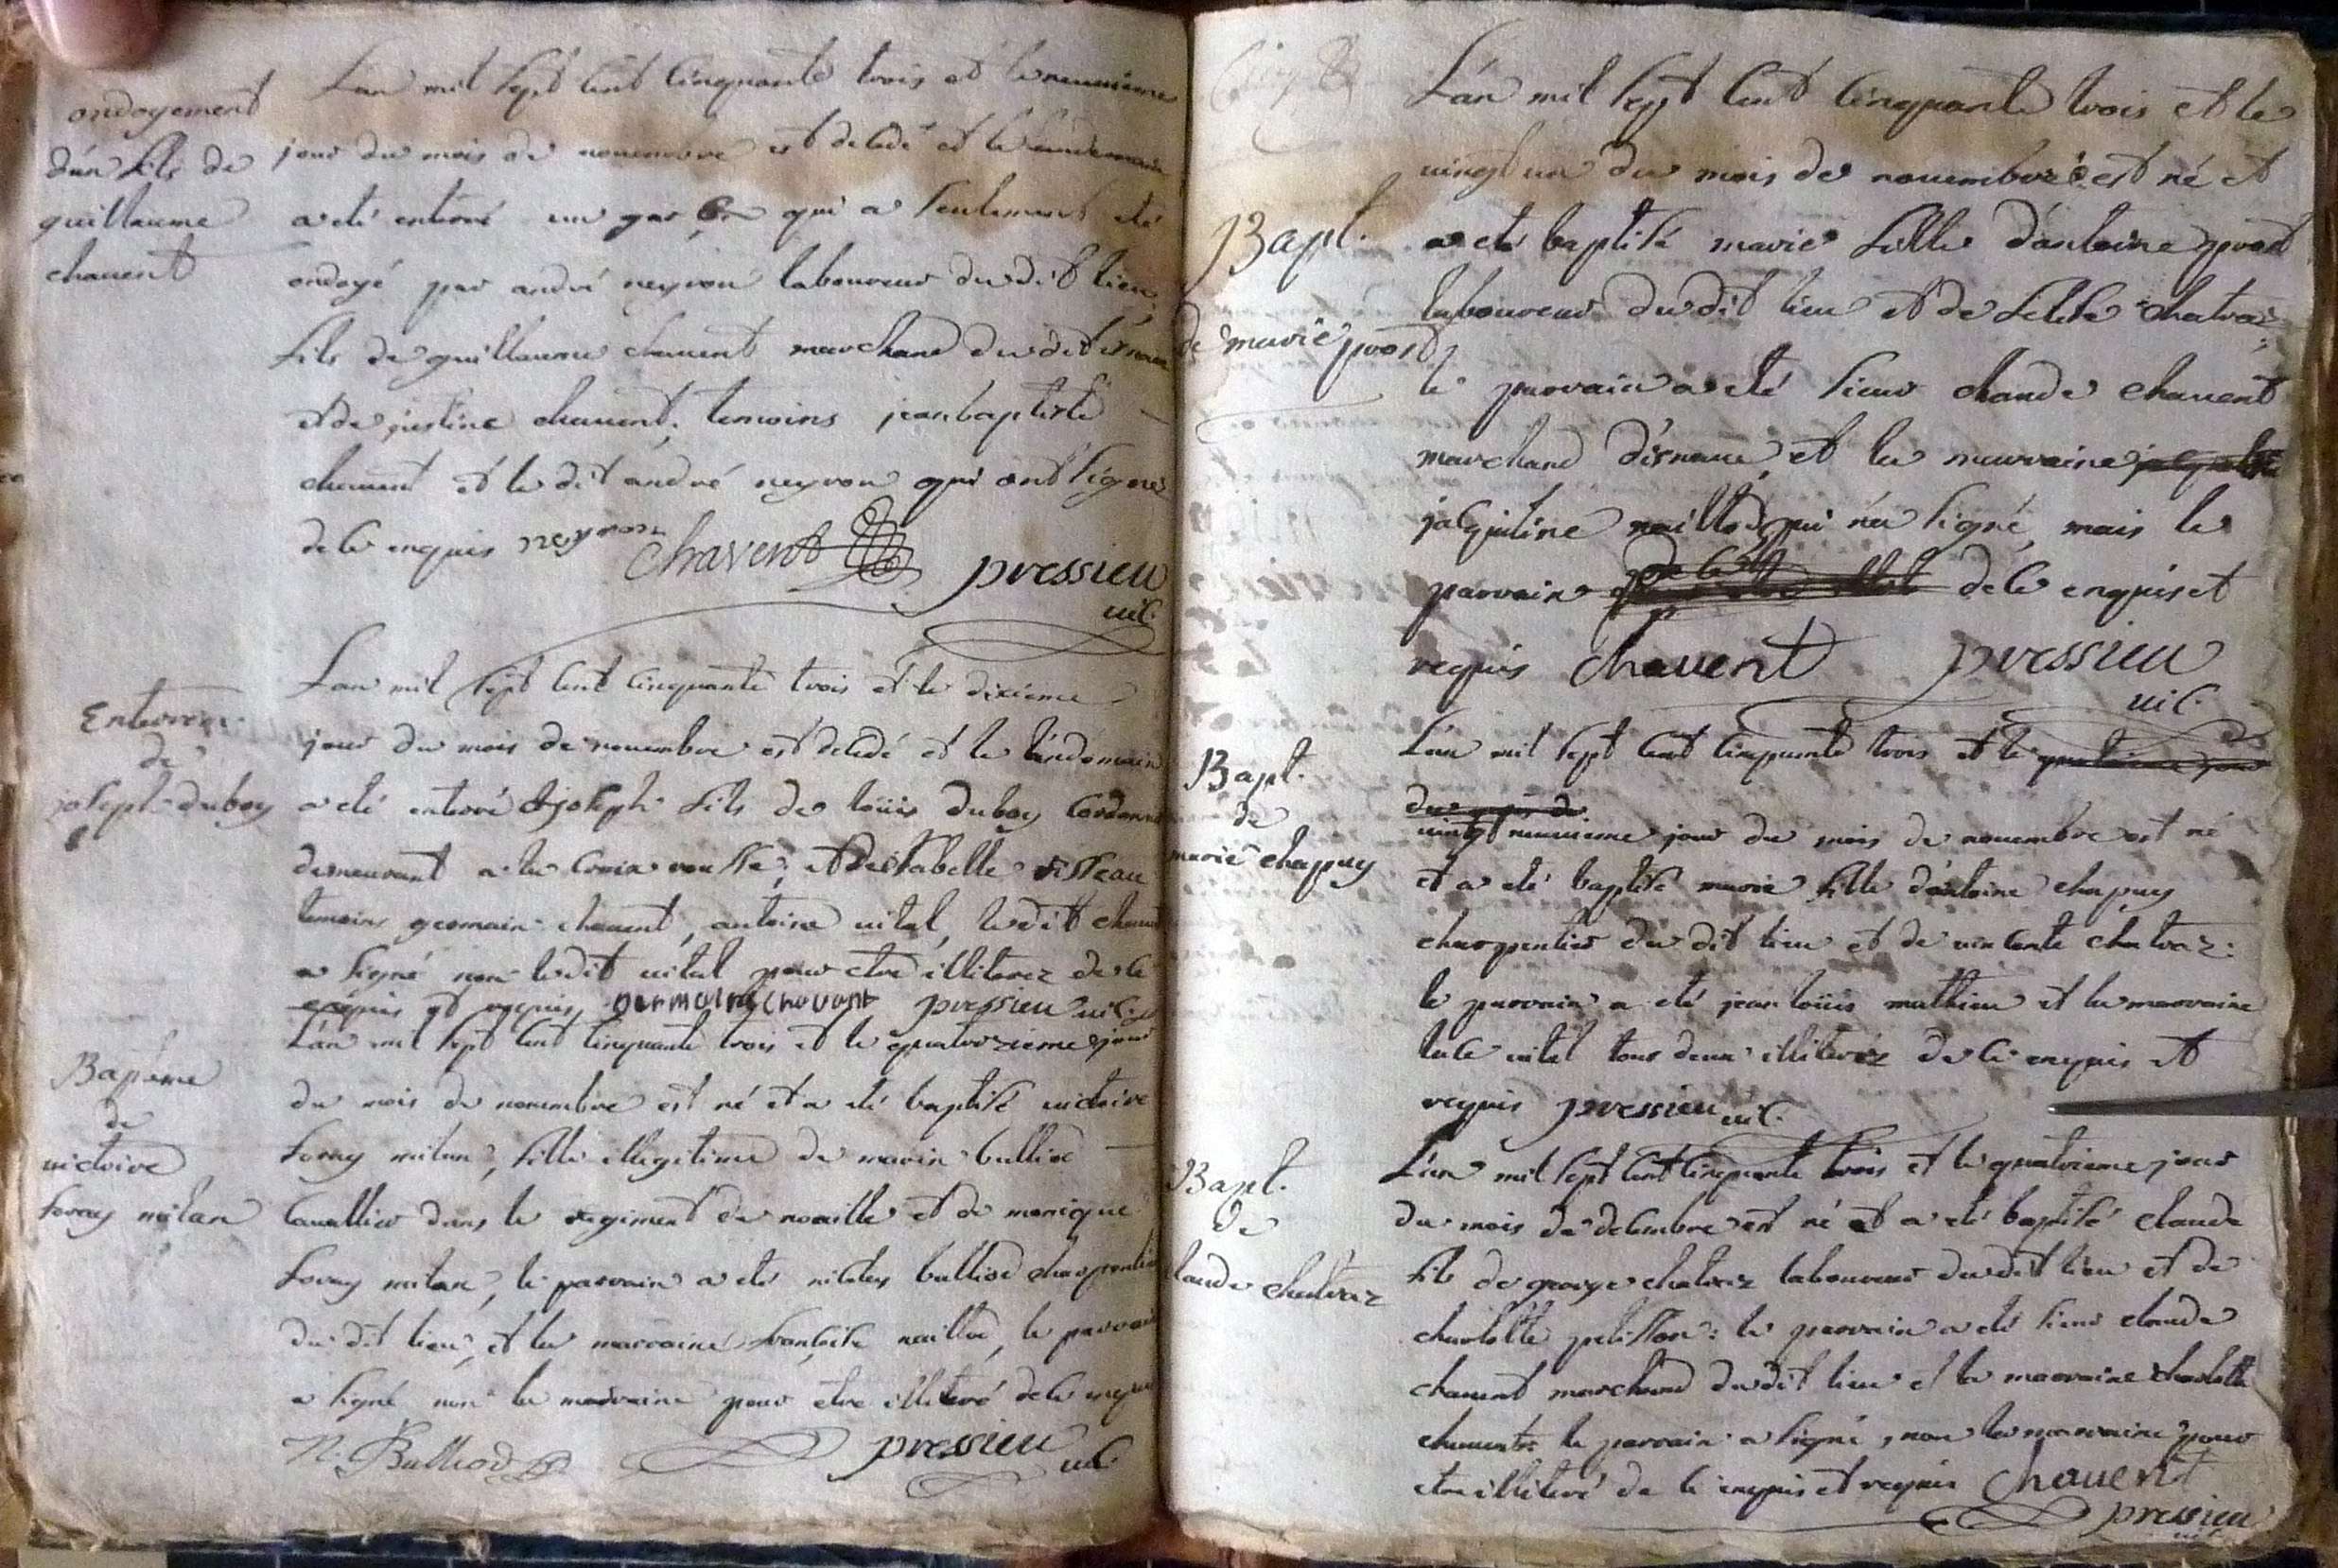 ondoyement
d'un fils de
guillaume
chauent
L'an mil sept cent cinquante trois et le neuuieme
jour du mois de nouembre est decedé et le lendemain
a eté enterré un garçon qui a seulement eté
ondoyé par andré neyron laboureur du dit lieu,
fils de guillaume chauent marchand du dit
et de justine chauent, temoins jean baptiste
chauent et le dit andré neyron qui ont signez
de ce enquis neyron chavent pressieu
uic.
Enterrem.
de
joseph duboy
L'an mil sept cent cinquante trois et le dixieme
jour du mois de nouembre est decedé et le lendemain
a eté enterré joseph fils de loüis duboy
demeurant a la croix rousse, et d'esabelle
temoins germain chauent, antoine uital, le dit
a signé non le dit uital pour etre illiterez de ce
enquis et requis germain chavant pressieu uic.
Bapteme
de
uictoire
foray milan
L'an mil sept cent cinquante trois et le quatorzieme jour
du mois de nouembre est né et a eté baptisé uictoire
foray milan, fille illegitime de marin bulliod
cauallier dans le regiment de noaille et de monique
foray milan, le parrain a eté nicolas bulliod charpentier
du dit lieu, et la marraine françoise naillod, le parrain
a signé non la marraine pour etre illiteré de ce enquis
N. Bulliod pressieu
uic.
Bapt.
de marie prost
L'an mil sept cent cinquante trois et le
uingt un du mois de nouembre est né et
a eté baptisé marie fille d'antoine prost
laboureur du dit lieu et de chatraz
le parrain a eté sieur claude chauent
marchand d'irnaue, et la marraine
jacquline naillod qui n'a signé, mais le
parrain de ce enquis et
requis chauent pressieu
uic.
Bapt.
de
marie chapuy
L'an mil sept cent cinquante trois et le quatrieme jour
du mois de
uingt neuuieme jour du mois de nouembre est né
et a eté baptisé marie fille d'antoine chapuy
charpentier du dit lieu et de uincente chatraz:
le parrain a eté jean loüis mathieu et la marraine
luce uital tous deux illiterez de ce enquis et
requis pressieu uic.
Bapt.
de
claude chatraz
L'an mil sept cent cinquante trois et le quatrieme jour
du mois de decembre est né et a eté baptisé claude
fils de george chatraz laboureur du dit lieu et de
charlotte pelisson: le parrain a eté sieur claude
chauent marchand du dit lieu et la marraine charlotte
le parrain a signé, non la marraine pour
etre illiteré de ce enquis et requis chauent
pressieu
uic.